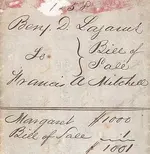 Benj. D. Lazarus
To } Bill of Sale
Francis A Mitchell
Margaret $1000
Bill of Sale 1
$1001